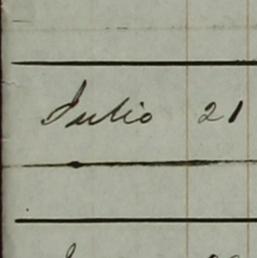 Julio 21